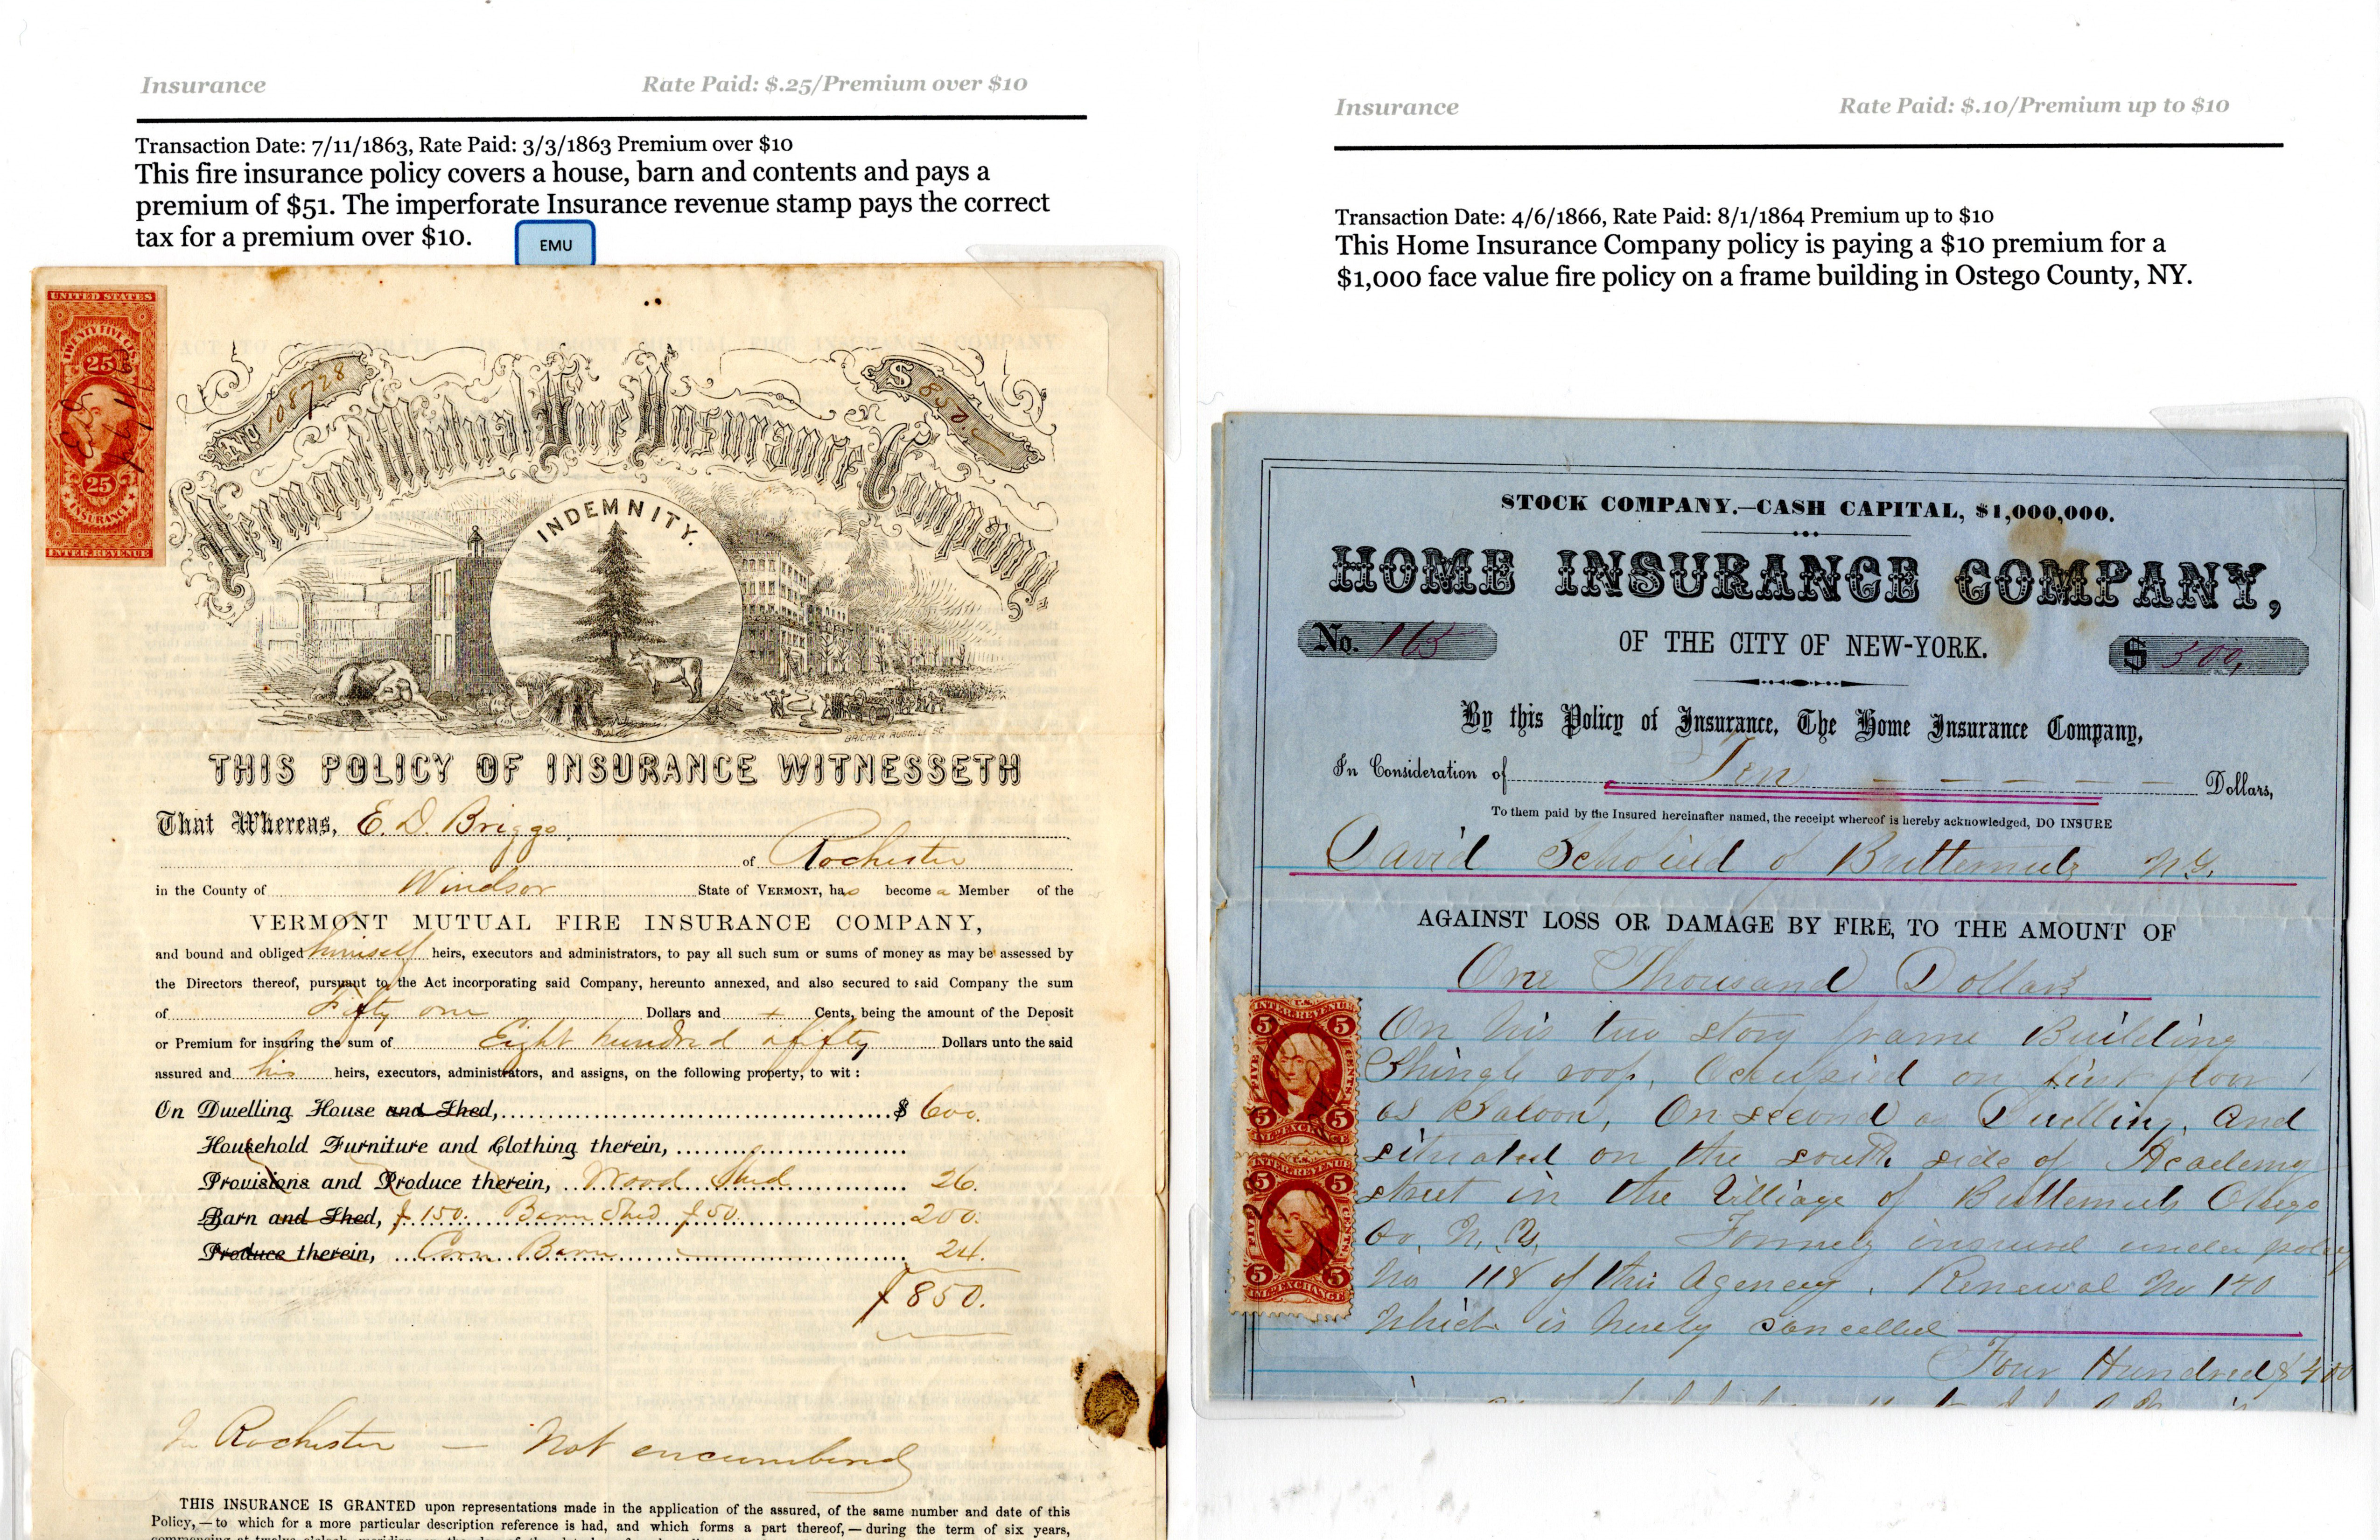 Insurance
Rate Paid: $.25/Premium over $10
Transaction Date: 7/11/1863, Rate Paid: 3/3/1863 Premium over $10
This fire insurance policy covers a house, barn and contents and pays a
premium of $51. The imperforate Insurance revenue stamp pays the correct
tax for a premium over $10.
EMU
UNITED STATES
TWENTY FIVE CTS.
25
25
INSURANCE
INTER. REVENUE
No 108728
$ 850.
Vermont Mutual Fire Insurance Company
INDEMNITY.
THIS POLICY OF INSURANCE WITNESSETH
That Whereas, E. D. Briggs,
of Rochester
in the County of Windsor State of VERMONT, has become a Member of the
VERMONT MUTUAL FIRE INSURANCE COMPANY,
and bound and obliged himself heirs, executors and administrators, to pay all such sum or sums of money as may be assessed by
the Directors thereof, pursuant to the Act incorporating said Company, hereunto annexed, and also secured to said Company the sum
of Fifty one Dollars and Cents, being the amount of the Deposit
or Premium for insuring the sum of Eight hundred & fifty Dollars unto the said
assured and his heirs, executors, administrators, and assigns, on the following property, to wit:
On Dwelling House and Shed, $ 600.
Household Furniture and Clothing therein,
Provisions and Produce therein, Wood Shed 26.
Barn and Shed, $150. Barn Shed $50. 200.
Produce therein, Corn Barn 24.
$850.
In Rochester — Not encumbered
THIS INSURANCE IS GRANTED upon representations made in the application of the assured, of the same number and date of this
Policy,—to which for a more particular description reference is had, and which forms a part thereof,—during the term of six years,
Insurance
Rate Paid: $.10/Premium up to $10
Transaction Date: 4/6/1866, Rate Paid: 8/1/1864 Premium up to $10
This Home Insurance Company policy is paying a $10 premium for a
$1,000 face value fire policy on a frame building in Ostego County, NY.
STOCK COMPANY.—CASH CAPITAL, $1,000,000.
HOME INSURANCE COMPANY,
No. 165
OF THE CITY OF NEW-YORK.
$ 500,
By this Policy of Insurance, The Home Insurance Company,
In Consideration of Ten Dollars,
To them paid by the Insured hereinafter named, the receipt whereof is hereby acknowledged, DO INSURE
David Schofield of Butternuts N.Y.
AGAINST LOSS OR DAMAGE BY FIRE, TO THE AMOUNT OF
One Thousand Dollars
On his two story frame Building
Shingle roof, Occupied on first floor
as Saloon, On second a Dwelling, and
situated on the south side of Academy
street in the Village of Butternuts Otsego
Co, N. Y. Formely insured under policy
No 118 of this Agency. Renewal No 140
Which is hereby cancelled
Four Hundred $400
INTER. REVENUE
5 5
FIVE CENTS
5 5
INL. EXCHANGE
INTER. REVENUE
5 5
FIVE CENTS
5 5
INL. EXCHANGE